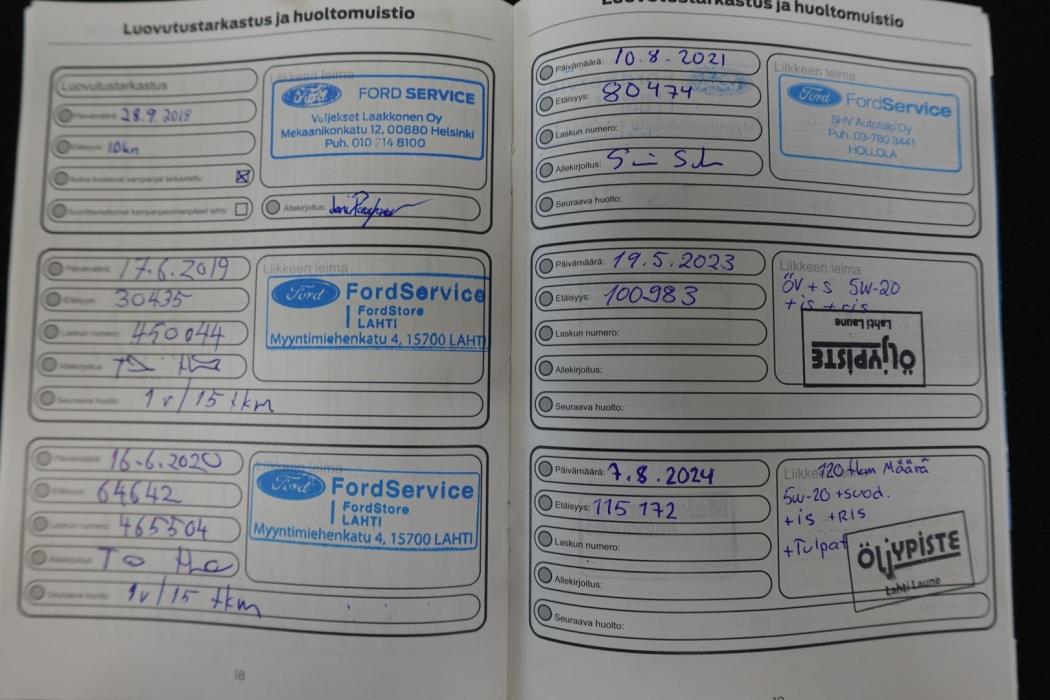 Luovutustarkastus ja huoltomuistio
Luovutustarkastus
Päivämäärä: 28.9.2018
Etäisyys: 10km
Allekirjoitus:
Liikkeen leima
Ford FORD SERVICE
Veljekset Laakkonen Oy
Mekaanikonkatu 12, 00880 Helsinki
Puh. 010 214 8100
Päivämäärä: 17.6.2019
Etäisyys: 30435
Laskun numero: 450044
Allekirjoitus:
Seuraava huolto: 1v/15 tkm
Liikkeen leima
Ford FordService
FordStore
LAHTI
Myyntimiehenkatu 4, 15700 LAHTI
Päivämäärä: 16.6.2020
Etäisyys: 64642
Laskun numero: 465504
Allekirjoitus:
Seuraava huolto: 1v/15 tkm
Liikkeen leima
Ford FordService
FordStore
LAHTI
Myyntimiehenkatu 4, 15700 LAHTI
18
Luovutustarkastus ja huoltomuistio
Päivämäärä: 10.8.2021
Etäisyys: 80474
Laskun numero:
Allekirjoitus:
Seuraava huolto:
Liikkeen leima
Ford FordService
SHV Autotalo Oy
Puh. 03-780 3441
HOLLOLA
Päivämäärä: 19.5.2023
Etäisyys: 100983
Laskun numero:
Allekirjoitus:
Seuraava huolto:
Liikkeen leima
ÖV+S 5W-20
+is +ris
ÖLJYPISTE
Lahti Laune
Päivämäärä: 7.8.2024
Etäisyys: 115 172
Laskun numero:
Allekirjoitus:
Seuraava huolto:
120 tkm Määrä
5W-20 +suod.
+is +RIS
+Tulpat
ÖLJYPISTE
Lahti Laune